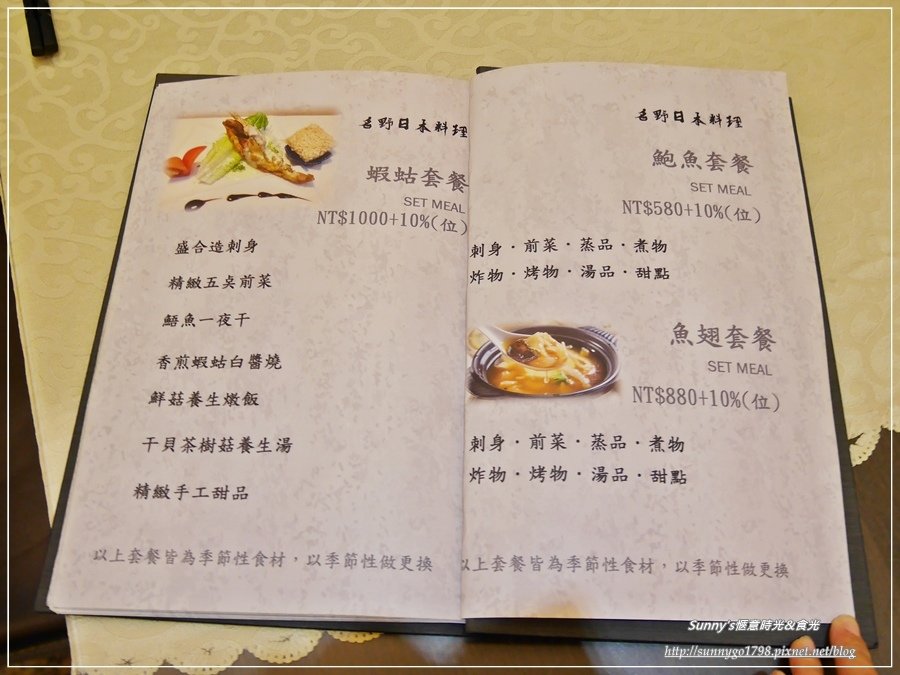 名野日本料理
蝦蛄套餐
SET MEAL
NT$1000+10%(位)
盛合造刺身
精緻五点前菜
鯃魚一夜干
香煎蝦蛄白醬燒
鮮菇養生燉飯
干貝茶樹菇養生湯
精緻手工甜品
以上套餐皆為季節性食材，以季節性做更換
名野日本料理
鮑魚套餐
SET MEAL
NT$580+10%(位)
刺身・前菜・蒸品・煮物
炸物・烤物・湯品・甜點
魚翅套餐
SET MEAL
NT$880+10%(位)
刺身・前菜・蒸品・煮物
炸物・烤物・湯品・甜點
以上套餐皆為季節性食材，以季節性做更換
Sunny's愜意時光&食光
http://sunnygo1798.pixnet.net/blog